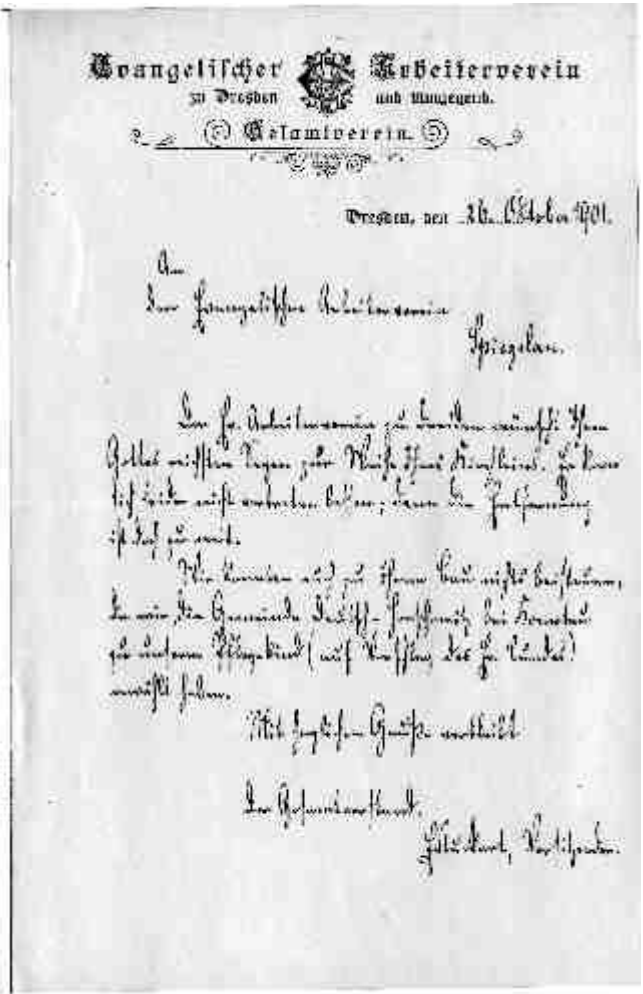 Evangelischer Arbeiterverein
zu Dresden und Umgegend.
Gesamtverein.
Dresden, den 26. Oktober 1901.
An
den Evangelischen Arbeiterverein
Spiegelau.
Der Ev. Arbeiterverein zu Dresden wünscht Ihnen
Gottes reichsten Segen zur Weihe Ihres Kirchleins. Er kann
sich leider nicht vertreten lassen, denn die Entfernung
ist doch zu weit.
Wir konnten auch zu Ihrem Bau nichts beisteuern,
da wir die Gemeinde bei
zu unserem Pflegekind (auf Vorschlag des Ev. Bundes)
erwählt haben.
Mit herzlichem Gruße verbleibt
der Gesamtvorstand.
Vorsitzender.